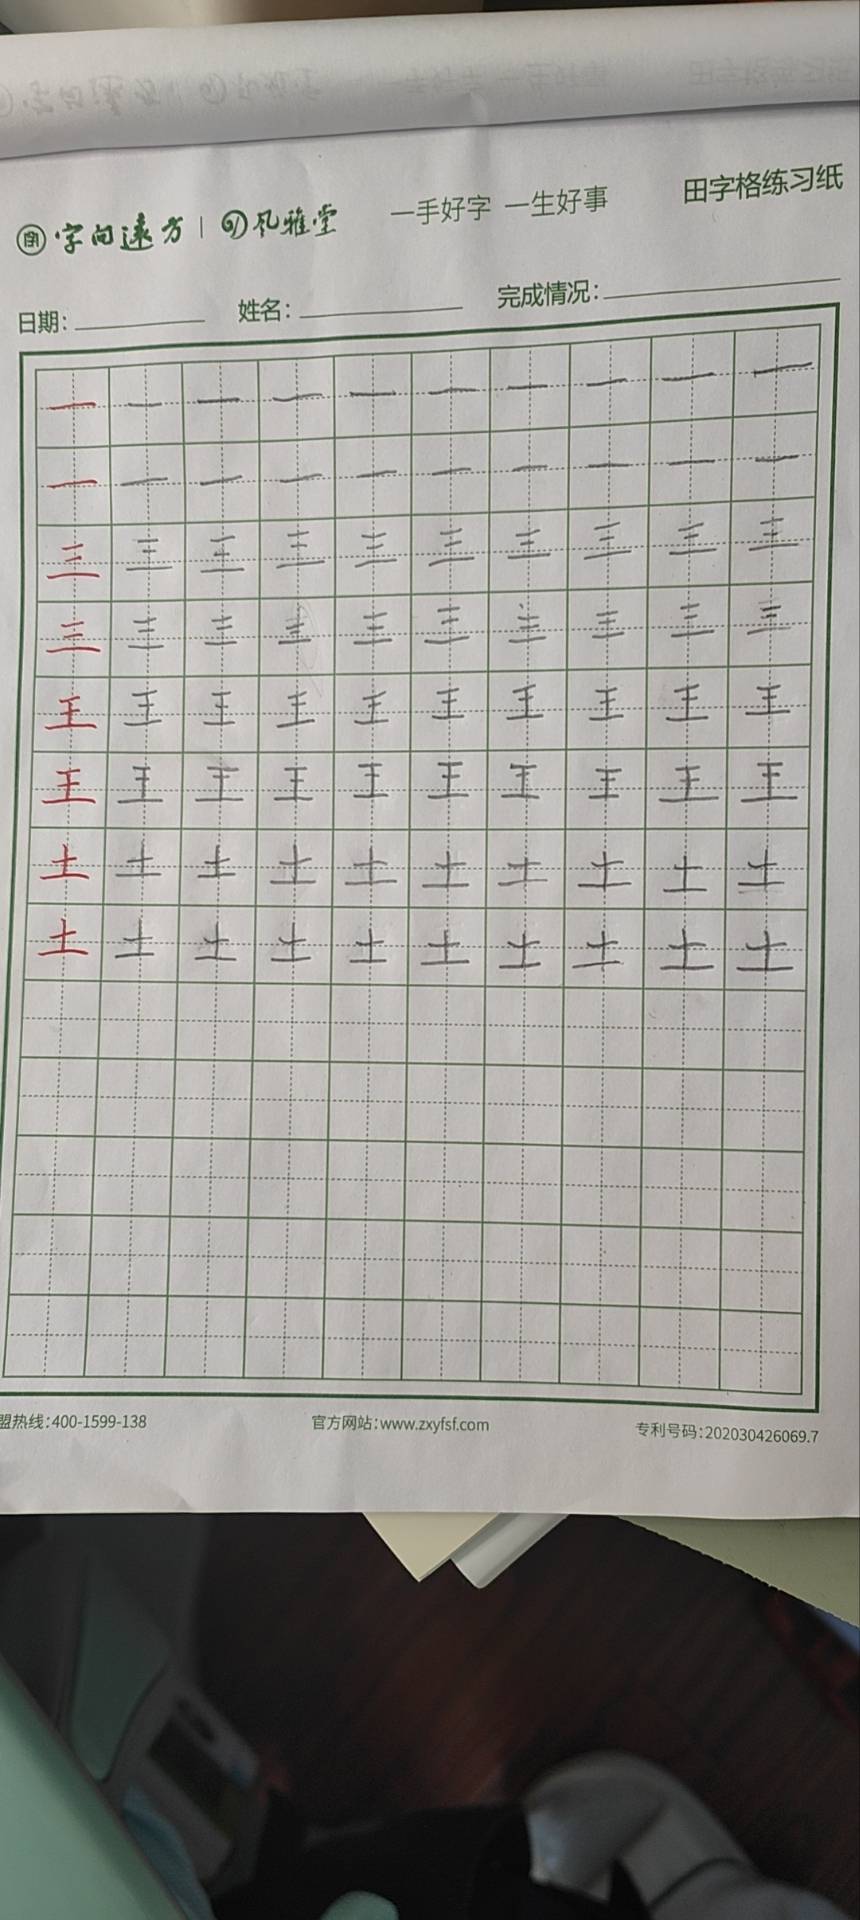 字向远方 | 风雅堂 一手好字 一生好事 田字格练习纸
日期： 姓名： 完成情况：
一 一 一 一 一 一 一 一 一 一
一 一 一 一 一 一 一 一 一 一
三 三 三 三 三 三 三 三 三 三
三 三 三 三 三 三 三 三 三 三
王 王 王 王 王 王 王 王 王 王
王 王 王 王 王 王 王 王 王 王
土 土 土 土 土 土 土 土 土 土
土 土 土 土 土 土 土 土 土 土
盟热线：400-1599-138 官方网站：www.zxyfsf.com 专利号码：202030426069.7